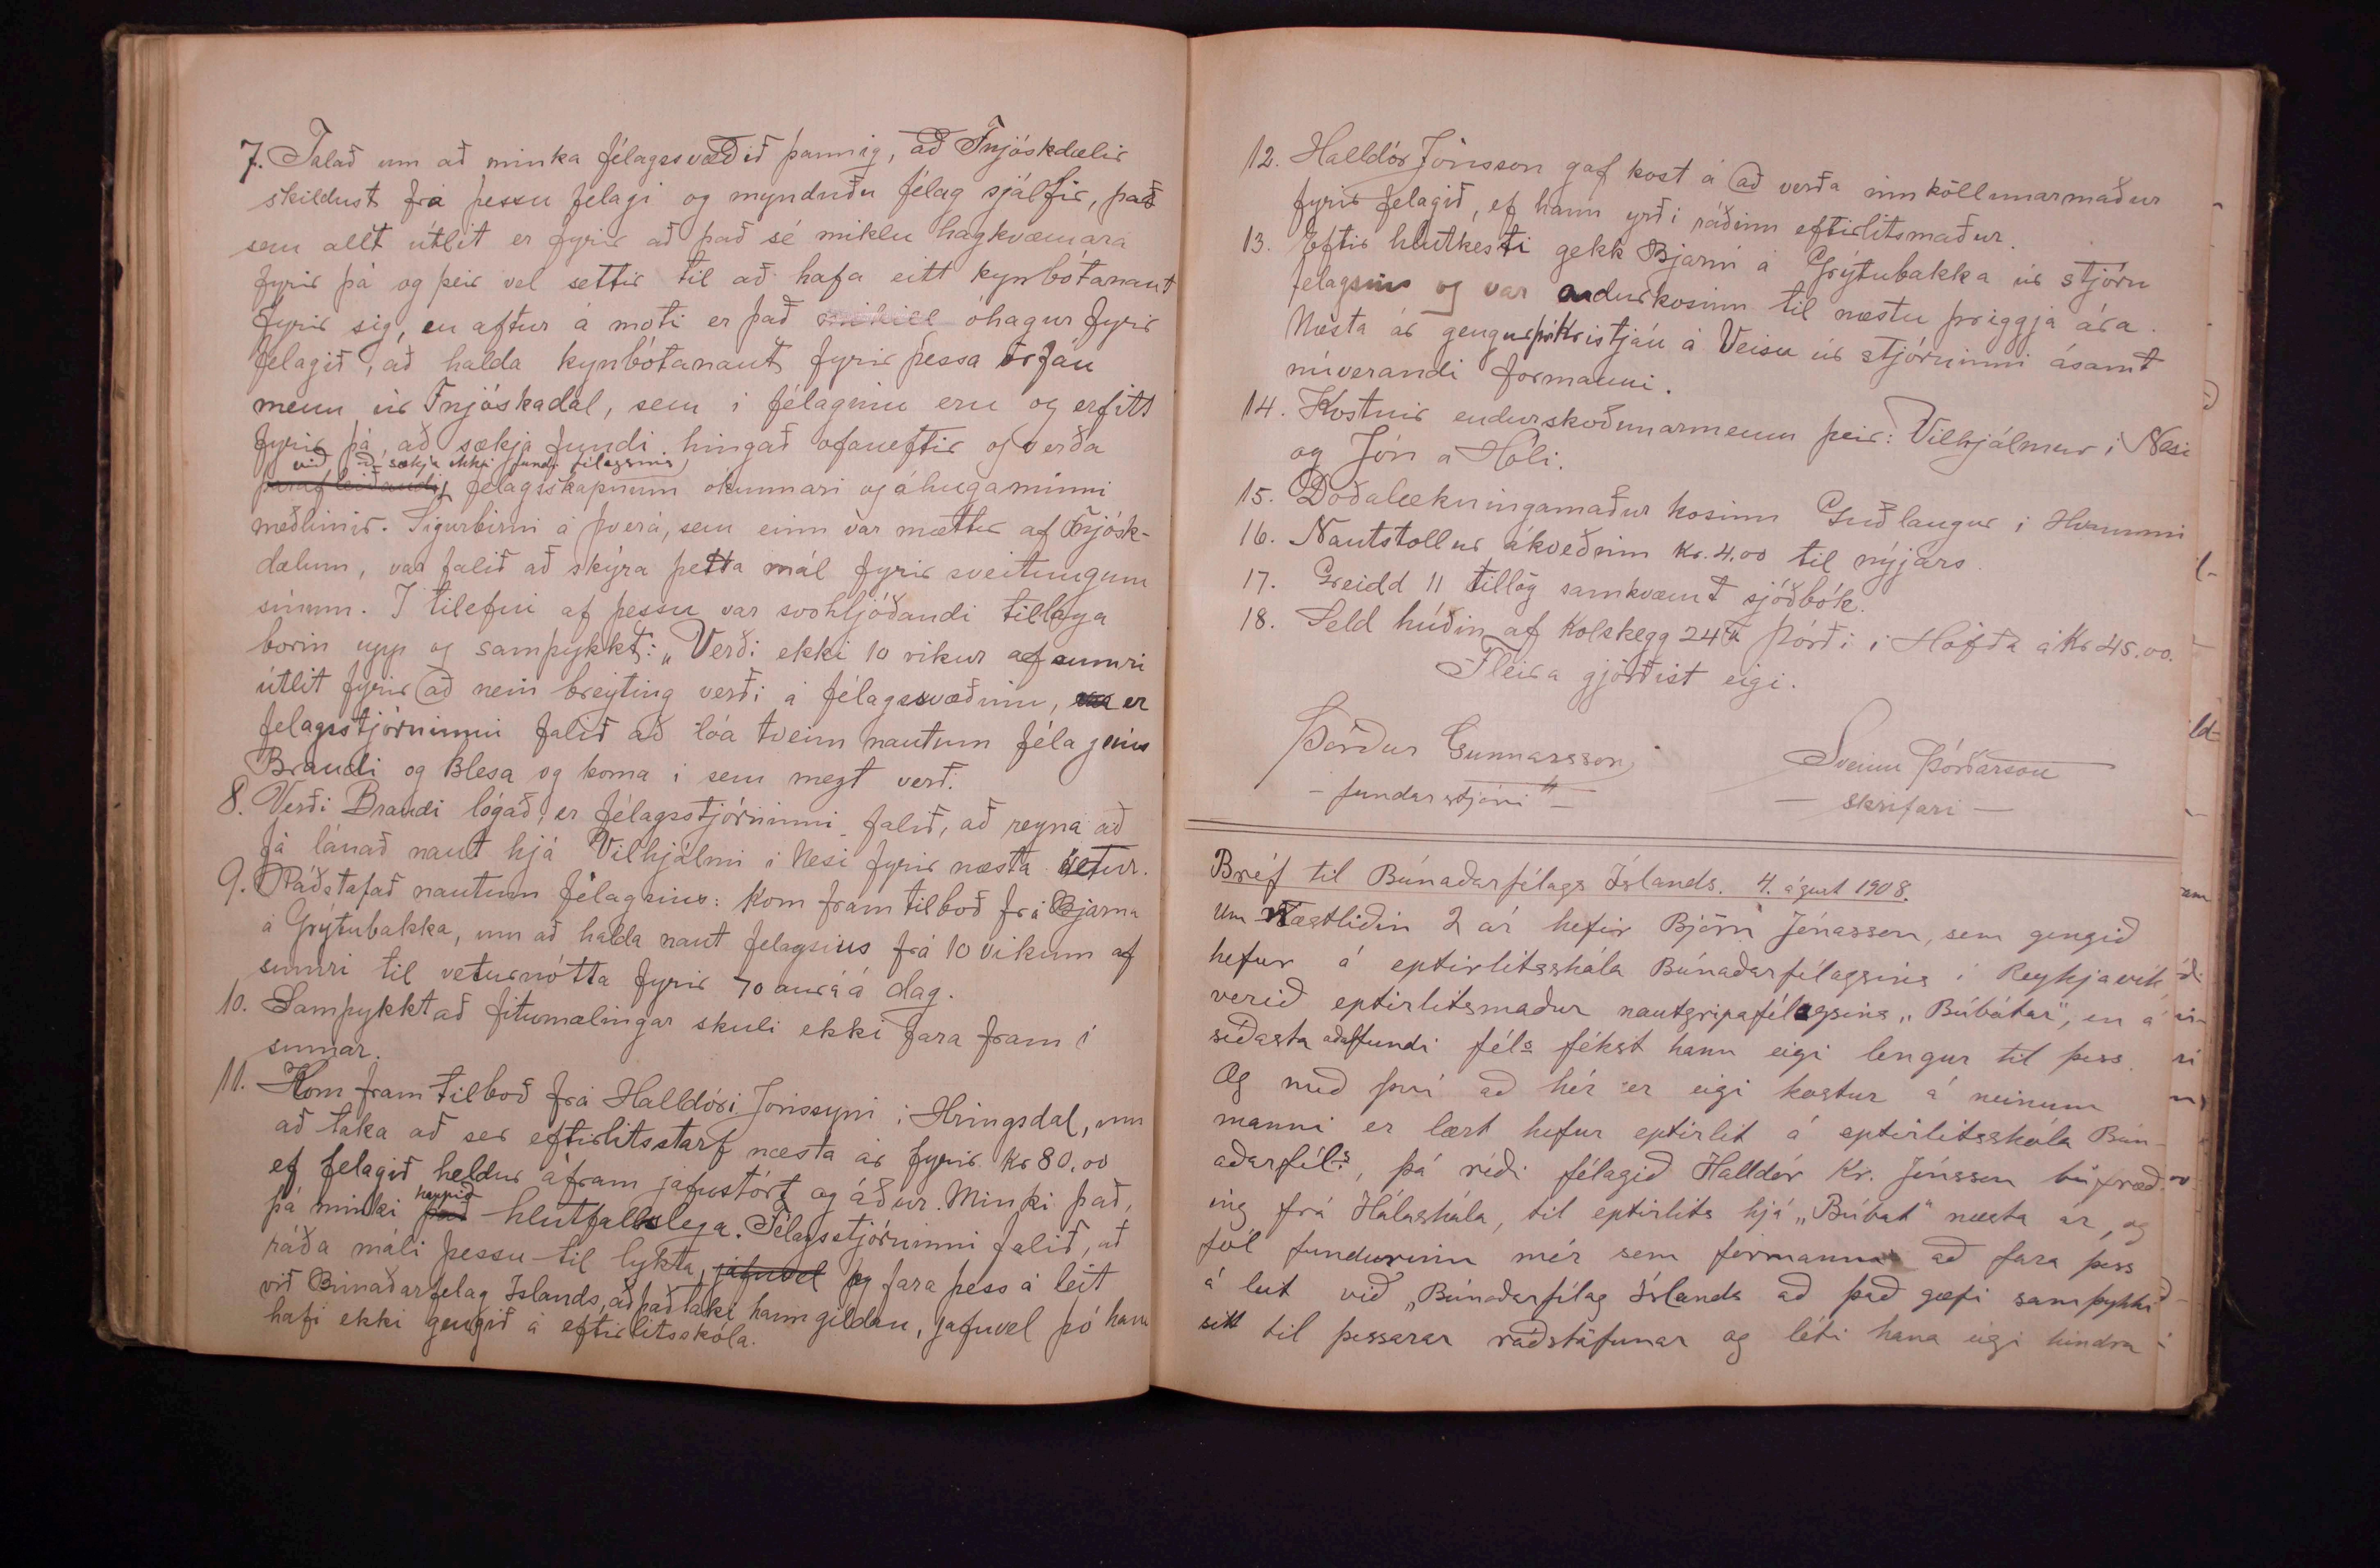 7. Talað um að minka félagssvæðið þannig, að Fnjóskdælir
skildust frá þessu félagi og mynduðu félag sjálfir, það
sem allt útlit er fyrir að það sé miklu hagkvæmara
fyrir þá og þeir vel settir til að hafa eitt kynbótanaut
fyrir sig, en aftur á moti er það mikill óhagur fyrir
felagið, að halda kynbótanaut fyrir þessa örfáu
menn úr Fnjóskadal, sem i félaginu eru og erfitt
fyrir þá að sækja fundi hingað ofaneftir og verða
við að sækja ekki fundi félagsins
þaraf leiðandi felagsskapnum ókunnari og áhugaminni
meðlimir. Sigurbirni á þverá, sem einn var mættur af Fnjósk-
dælum, var falið að skýra þetta mál fyrir sveitungum
sínum. I tilefni af þessu var svohljóðandi tillaga
borin upp og samþykkt: „Verði ekki 10 vikur af sumri
útlit fyrir að nein breyting verði á félagssvæðinu, er
felagsstjórninni falið að lóa tveim nautum félagsins
Brandi og Blesa og koma i sem mezt verð.
8. Verði Brandi lógað, er félagsstjórninni falið, að reyna að
fá lánað naut hjá Vilhjálmi i Nesi fyrir næsta vetur.
9. Ráðstafað nautum félagsins: Kom fram tilboð frá Bjarna
á Grýtubakka, um að halda naut felagsins frá 10 vikum af
sumri til veturnótta fyrir 70 aura á dag.
10. Samþykkt að fitumælingar skuli ekki fara fram í
sumar.
11. Kom fram tilboð frá Halldóri Jónssyni i Hringsdal, um
að taka að ser eftirlitsstarf næsta ár fyrir Kr 80,00
ef felagið heldur áfram jafnstórt og áður. Minki það,
þá minki það kaupið hlutfallslega. Félagsstjórninni falið, að
ráða máli þessu til lykta, jafnvel og fara þess á leit
við Búnaðarfelag Islands, að það taki hann gildan, jafnvel þó hann
hafi ekki gengið á eftirlitsskóla.
12. Halldór Jónsson gaf kost á að verða innköllunarmaður
fyrir felagið, ef hann yrði ráðinn eftirlitsmaður.
13. Eftir hlutkesti gekk Bjarni á Grýtubakka úr stjórn
felagsins og var endurkosinn til næstu þriggja ára.
Næsta ár gengur þá Kristján á Veisu úr stjórninni ásamt
núverandi formanni.
14. Kostnir endurskoðunarmenn þeir: Vilhjálmur i Nesi
og Jón á Hóli.
15. Doðalækningamaður kosinn Guðlaugur i Hvammi
16. Nautstollur ákveðinn kr. 4.00 til nýjars.
17. Greidd 11 tillög samkvæmt sjóðbók.
18. Seld húðin af Kolskegg 24 ℔ Þórði i Höfða á Kr 45.00.
Fleira gjörðist eigi.
Þórður Gunnarsson
- fundarstjóri -
Sveinn Þórðarson
- skrifari -
Bréf til Búnaðarfélags Íslands. 4. ágúst 1908.
Um næstliðin 2 ár hefir Björn Jónasson, sem gengið
hefur á eptirlitsskóla Búnaðarfélagsins i Reykjavík
verið eptirlitsmaður nautgripafélagsins „Búbótar", en á
síðasta aðalfundi féls fékst hann eigi lengur til þess.
Og með því að hér er eigi kostur á neinum
manni er lært hefur eptirlit á eptirlitsskóla Bún-
aðarféls, þá réði félagið Halldór Kr. Jónsson búfræð-
ing frá Hólaskóla, til eptirlits hjá „Búbót" næsta ár, og
fól fundurinn mér sem formanni að fara þess
á leit við „Búnaðarfélag Íslands að það gæfi samþykki
sitt til þessarar ráðstöfunar og léti hana eigi hindra